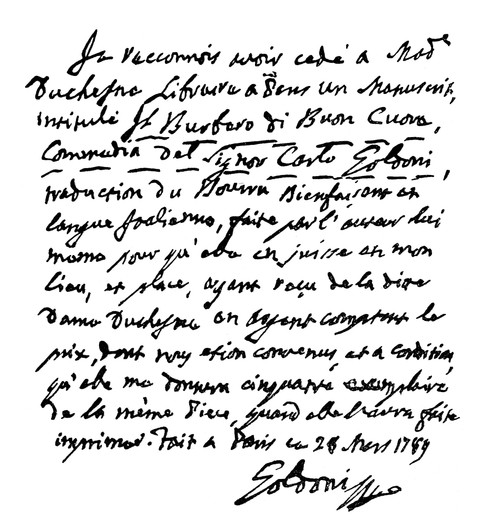 Je racconnois avoir cedé a Mad.e
Duchesne Libraire a Paris un Manuscrit,
intitulé Il Burbero di Buon Cuore,
Commedia del Signor Carlo Goldoni,
traduction du Bourru Bienfaisant en
langue Italienne, faite par l'auteur lui
meme pour qu'elle en juisse en mon
lieu, et place, ayant reçu de la dite
Dame Duchesne en argent comptent le
prix, dont nous etion convenus, et a condition,
qu'elle me donnera cinquante exemplaire
de la même Piece, quand elle l'aura faite
imprimer. Fait a Paris ce 28 Mars 1789
Goldoni